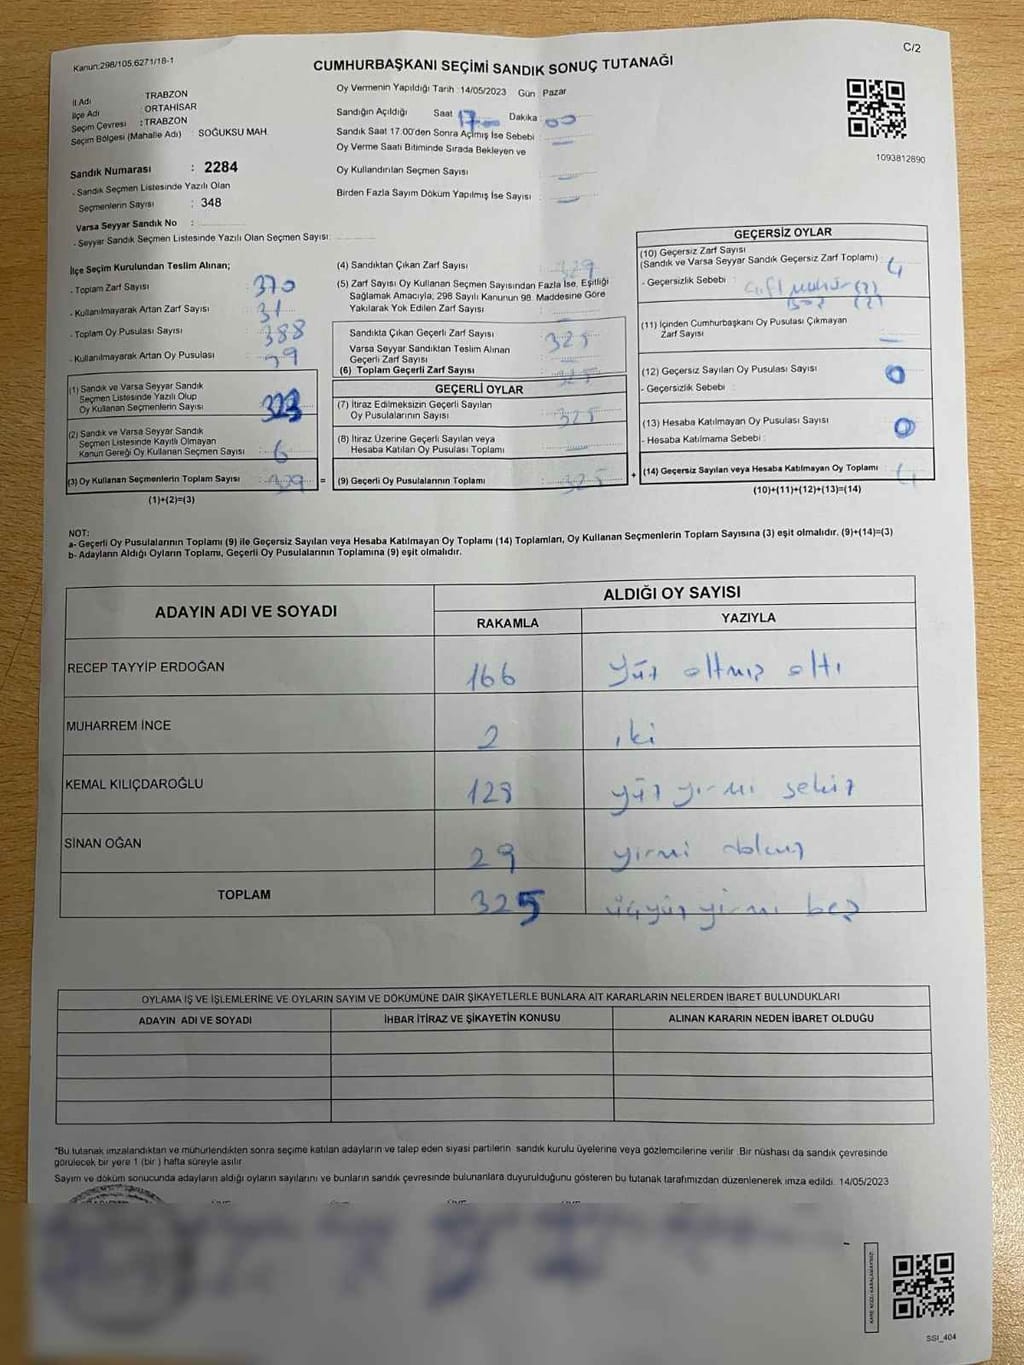 C/2
Kanun:298/105,6271/18-1
CUMHURBAŞKANI SEÇİMİ SANDIK SONUÇ TUTANAĞI
İl Adı TRABZON
İlçe Adı ORTAHİSAR
Seçim Çevresi : TRABZON
Seçim Bölgesi (Mahalle Adı) SOĞUKSU MAH.
Sandık Numarası : 2284
- Sandık Seçmen Listesinde Yazılı Olan
Seçmenlerin Sayısı : 348
Varsa Seyyar Sandık No :
- Seyyar Sandık Seçmen Listesinde Yazılı Olan Seçmen Sayısı:
Oy Vermenin Yapıldığı Tarih :14/05/2023 Gün : Pazar
Sandığın Açıldığı Saat 17 Dakika 00
Sandık Saat 17.00'den Sonra Açılmış İse Sebebi :
Oy Verme Saati Bitiminde Sırada Bekleyen ve
Oy Kullandırılan Seçmen Sayısı :
Birden Fazla Sayım Döküm Yapılmış İse Sayısı :
1093812890
İlçe Seçim Kurulundan Teslim Alınan;
- Toplam Zarf Sayısı : 370
- Kullanılmayarak Artan Zarf Sayısı : 31
- Toplam Oy Pusulası Sayısı : 388
- Kullanılmayarak Artan Oy Pusulası
(1) Sandık ve Varsa Seyyar Sandık
Seçmen Listesinde Yazılı Olup
Oy Kullanan Seçmenlerin Sayısı : 323
(2) Sandık ve Varsa Seyyar Sandık
Seçmen Listesinde Kayıtlı Olmayan
Kanun Gereği Oy Kullanan Seçmen Sayısı : 6
(3) Oy Kullanan Seçmenlerin Toplam Sayısı : 329
(1)+(2)=(3)
(4) Sandıktan Çıkan Zarf Sayısı : 329
(5) Zarf Sayısı Oy Kullanan Seçmen Sayısından Fazla İse, Eşitliği
Sağlamak Amacıyla; 298 Sayılı Kanunun 98. Maddesine Göre
Yakılarak Yok Edilen Zarf Sayısı :
Sandıkta Çıkan Geçerli Zarf Sayısı : 325
Varsa Seyyar Sandıktan Teslim Alınan
Geçerli Zarf Sayısı :
(6) Toplam Geçerli Zarf Sayısı : 325
GEÇERLİ OYLAR
(7) İtiraz Edilmeksizin Geçerli Sayılan
Oy Pusulalarının Sayısı : 325
(8) İtiraz Üzerine Geçerli Sayılan veya
Hesaba Katılan Oy Pusulası Toplamı :
= (9) Geçerli Oy Pusulalarının Toplamı : 325
GEÇERSİZ OYLAR
(10) Geçersiz Zarf Sayısı
(Sandık ve Varsa Seyyar Sandık Geçersiz Zarf Toplamı) : 4
- Geçersizlik Sebebi : Çift mühür (2)
Boş (2)
(11) İçinden Cumhurbaşkanı Oy Pusulası Çıkmayan
Zarf Sayısı : —
(12) Geçersiz Sayılan Oy Pusulası Sayısı : 0
- Geçersizlik Sebebi :
(13) Hesaba Katılmayan Oy Pusulası Sayısı : 0
- Hesaba Katılmama Sebebi :
+ (14) Geçersiz Sayılan veya Hesaba Katılmayan Oy Toplamı : 4
(10)+(11)+(12)+(13)=(14)
NOT:
a- Geçerli Oy Pusulalarının Toplamı (9) ile Geçersiz Sayılan veya Hesaba Katılmayan Oy Toplamı (14) Toplamları, Oy Kullanan Seçmenlerin Toplam Sayısına (3) eşit olmalıdır. (9)+(14)=(3)
b- Adayların Aldığı Oyların Toplamı, Geçerli Oy Pusulalarının Toplamına (9) eşit olmalıdır.
ADAYIN ADI VE SOYADI
ALDIĞI OY SAYISI
RAKAMLA YAZIYLA
RECEP TAYYİP ERDOĞAN 166 yüz altmış altı
MUHARREM İNCE 2 iki
KEMAL KILIÇDAROĞLU 128 yüz yirmi sekiz
SİNAN OĞAN 29 yirmi dokuz
TOPLAM 325 üçyüz yirmi beş
OYLAMA İŞ VE İŞLEMLERİNE VE OYLARIN SAYIM VE DÖKÜMÜNE DAİR ŞİKAYETLERLE BUNLARA AİT KARARLARIN NELERDEN İBARET BULUNDUKLARI
ADAYIN ADI VE SOYADI İHBAR İTİRAZ VE ŞİKAYETİN KONUSU ALINAN KARARIN NEDEN İBARET OLDUĞU
*Bu tutanak imzalandıktan ve mühürlendikten sonra seçime katılan adayların ve talep eden siyasi partilerin sandık kurulu üyelerine veya gözlemcilerine verilir. Bir nüshası da sandık çevresinde
görülecek bir yere 1 (bir) hafta süreyle asılır.
Sayım ve döküm sonucunda adayların aldığı oyların sayılarını ve bunların sandık çevresinde bulunanlara duyurulduğunu gösteren bu tutanak tarafımızdan düzenlenerek imza edildi. 14/05/2023
SSI_404